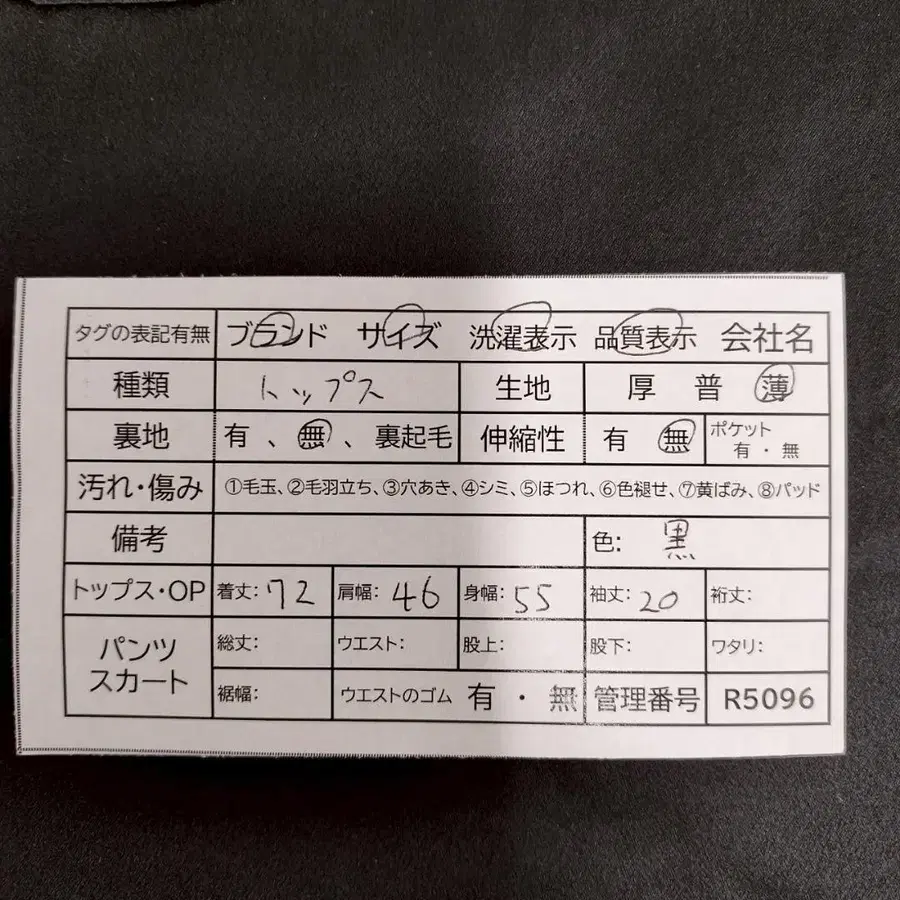 タグの表記有無 ブランド サイズ 洗濯表示 品質表示 会社名
種類 トップス 生地 厚 普 薄
裏地 有 、 無 、 裏起毛 伸縮性 有 無 ポケット 有 ・ 無
汚れ・傷み ①毛玉、②毛羽立ち、③穴あき、④シミ、⑤ほつれ、⑥色褪せ、⑦黄ばみ、⑧パッド
備考 色: 黒
トップス・OP 着丈: 72 肩幅: 46 身幅: 55 袖丈: 20 裄丈:
パンツ スカート 総丈: ウエスト: 股上: 股下: ワタリ:
裾幅: ウエストのゴム 有 ・ 無 管理番号 R5096